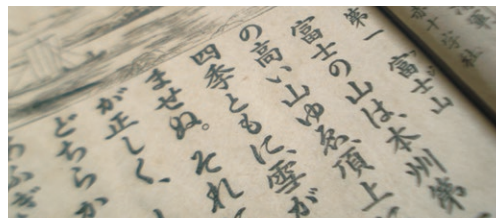 赤十字社
第一 富士山
富士の山は、本州第
の高い山ゆゑ、頂上
四季ともに、雪が
ませぬ。それ
が正しく、
どちらか